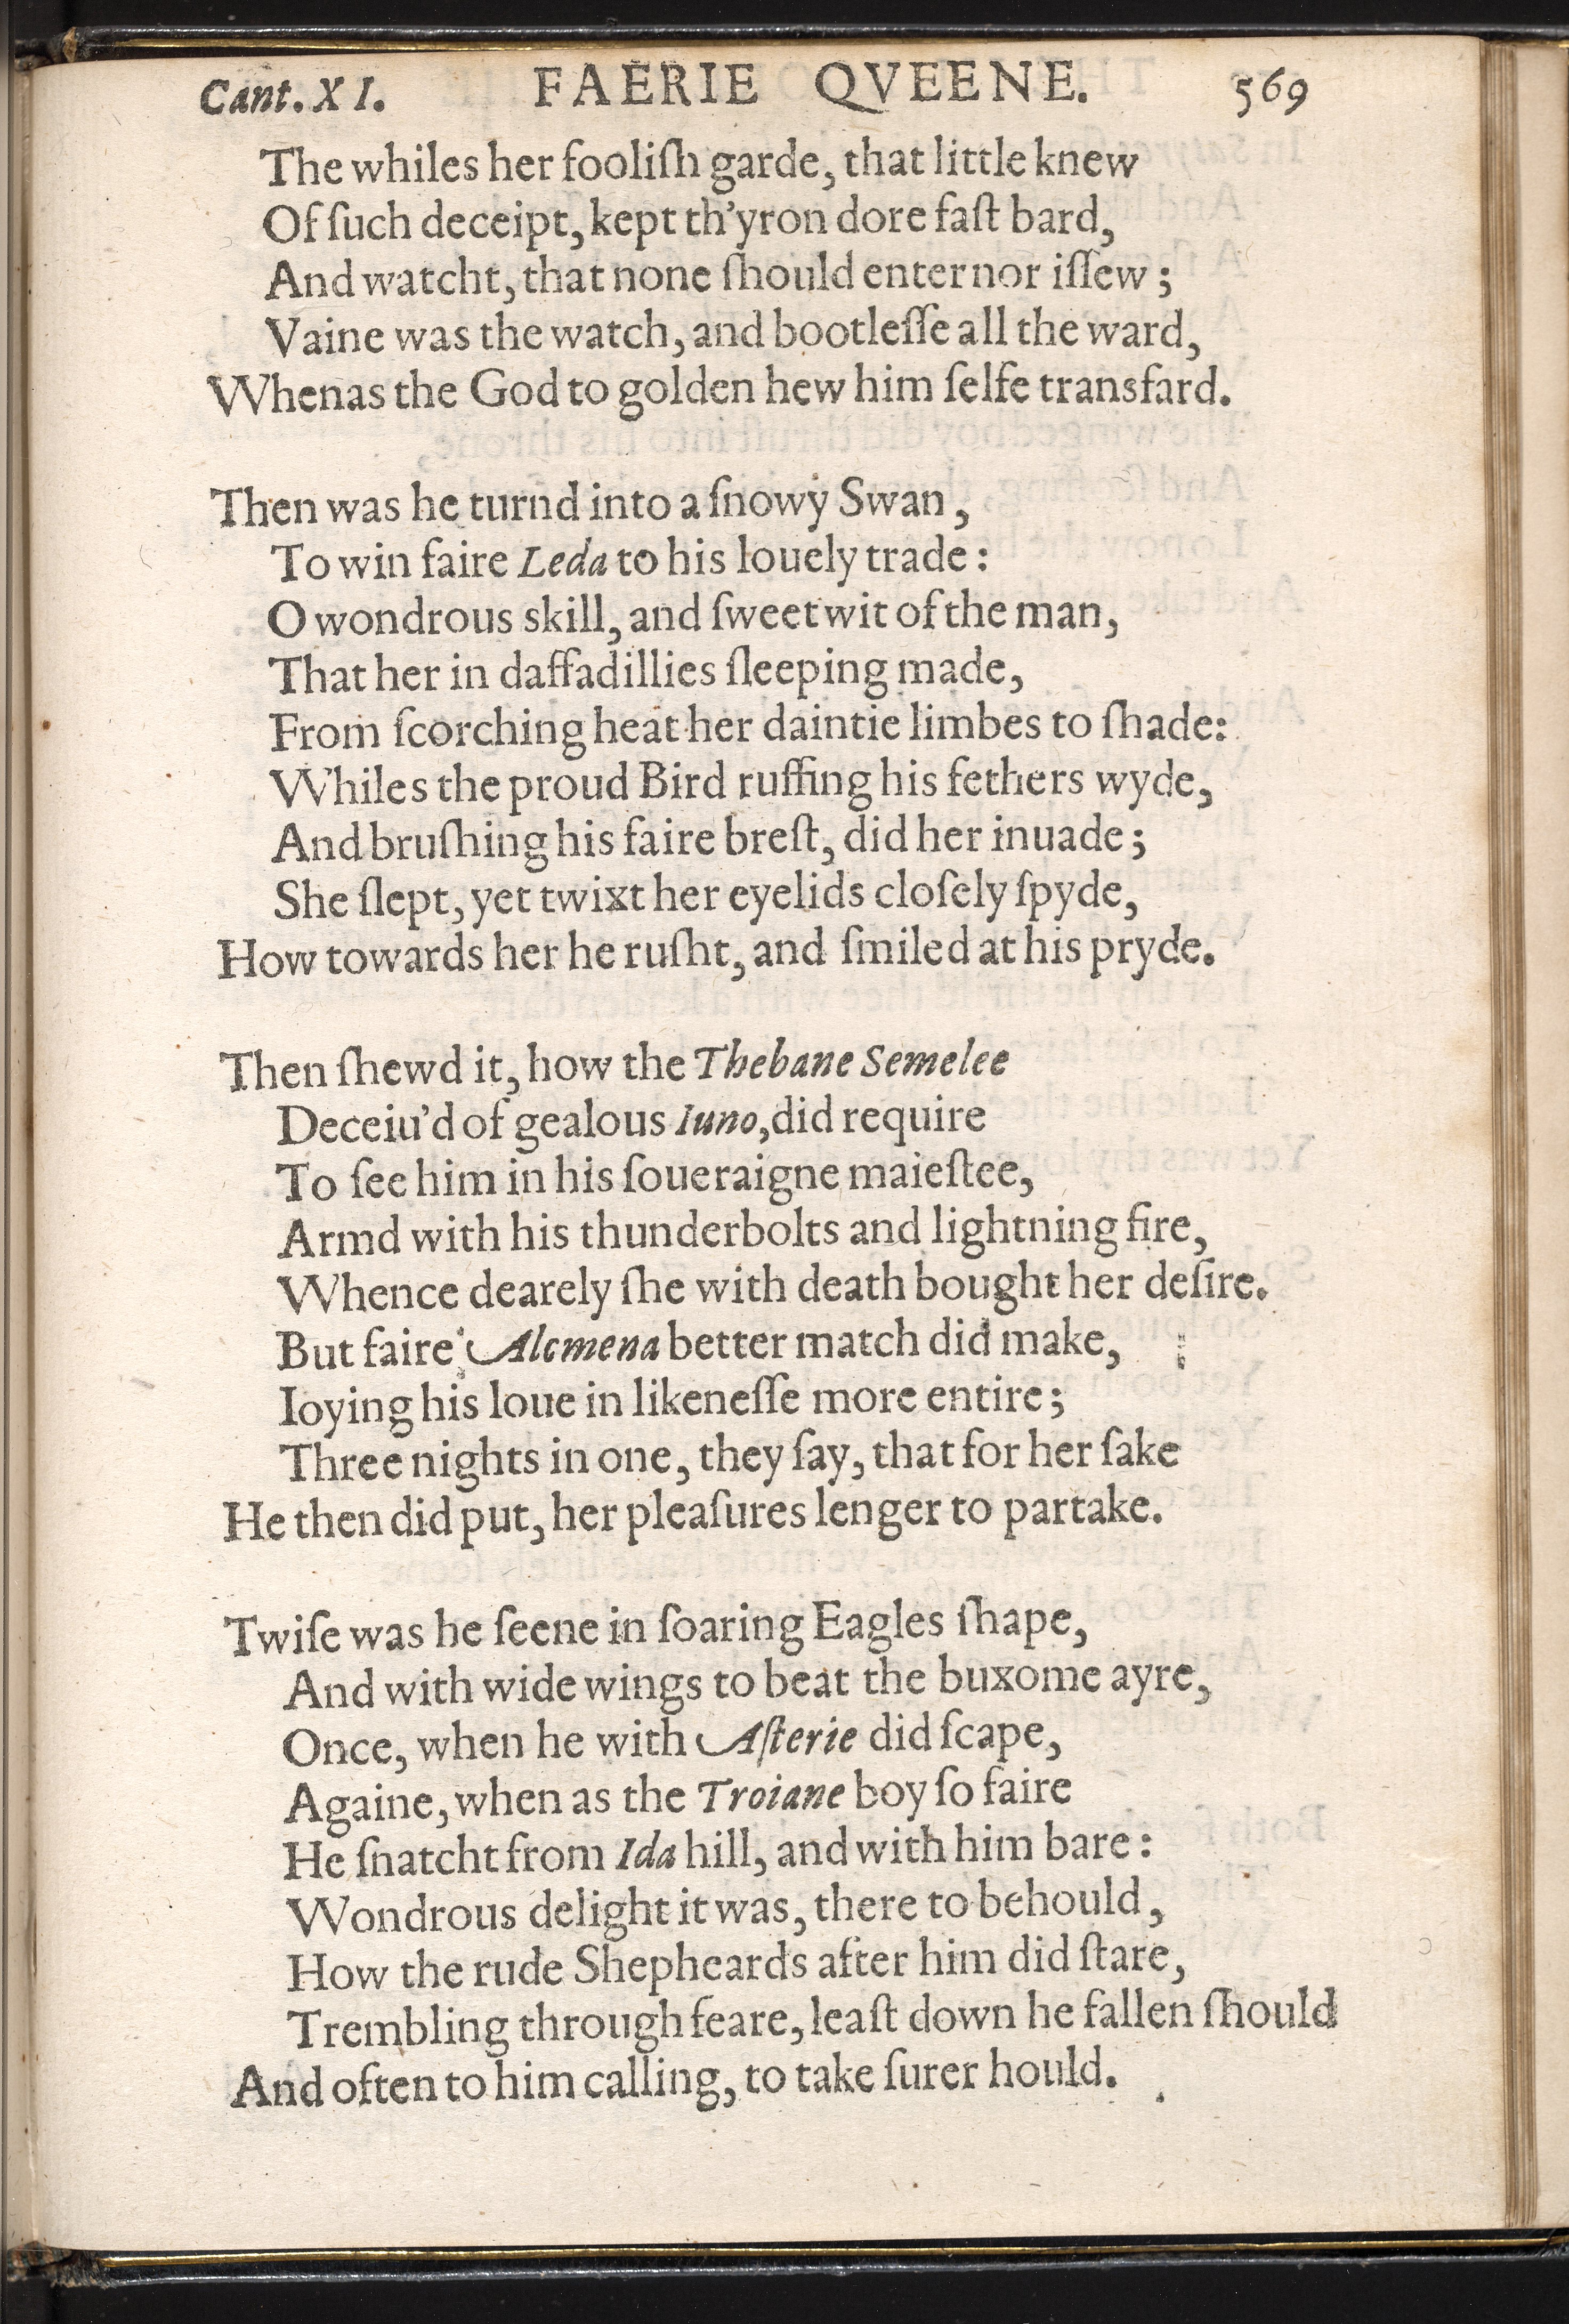 Cant. XI. FAERIE QVEENE. 569
The whiles her fooliſh garde, that little knew
Of ſuch deceipt, kept th'yron dore faſt bard,
And watcht, that none ſhould enter nor iſſew;
Vaine was the watch, and bootleſſe all the ward,
Whenas the God to golden hew him ſelfe transfard.
Then was he turnd into a ſnowy Swan,
To win faire Leda to his louely trade:
O wondrous skill, and ſweet wit of the man,
That her in daffadillies ſleeping made,
From ſcorching heat her daintie limbes to ſhade:
Whiles the proud Bird ruffing his fethers wyde,
And bruſhing his faire breſt, did her inuade;
She ſlept, yet twixt her eyelids cloſely ſpyde,
How towards her he ruſht, and ſmiled at his pryde.
Then ſhewd it, how the Thebane Semelee
Deceiu'd of gealous Iuno, did require
To ſee him in his ſoueraigne maieſtee,
Armd with his thunderbolts and lightning fire,
Whence dearely ſhe with death bought her deſire.
But faire Alcmena better match did make,
Ioying his loue in likeneſſe more entire;
Three nights in one, they ſay, that for her ſake
He then did put, her pleaſures lenger to partake.
Twiſe was he ſeene in ſoaring Eagles ſhape,
And with wide wings to beat the buxome ayre,
Once, when he with Aſterie did ſcape,
Againe, when as the Troiane boy ſo faire
He ſnatcht from Ida hill, and with him bare:
Wondrous delight it was, there to behould,
How the rude Shepheards after him did ſtare,
Trembling through feare, leaſt down he fallen ſhould
And often to him calling, to take ſurer hould.